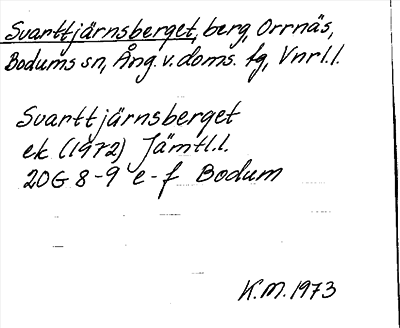 Svarttjärnsberget, berg, Orrnäs,
Bodums sn, Ång. v. doms. fg, Vnrl.l.
Svarttjärnsberget
ek (1972) Jämtl.l.
20G 8-9 e-f Bodum
K.M. 1973